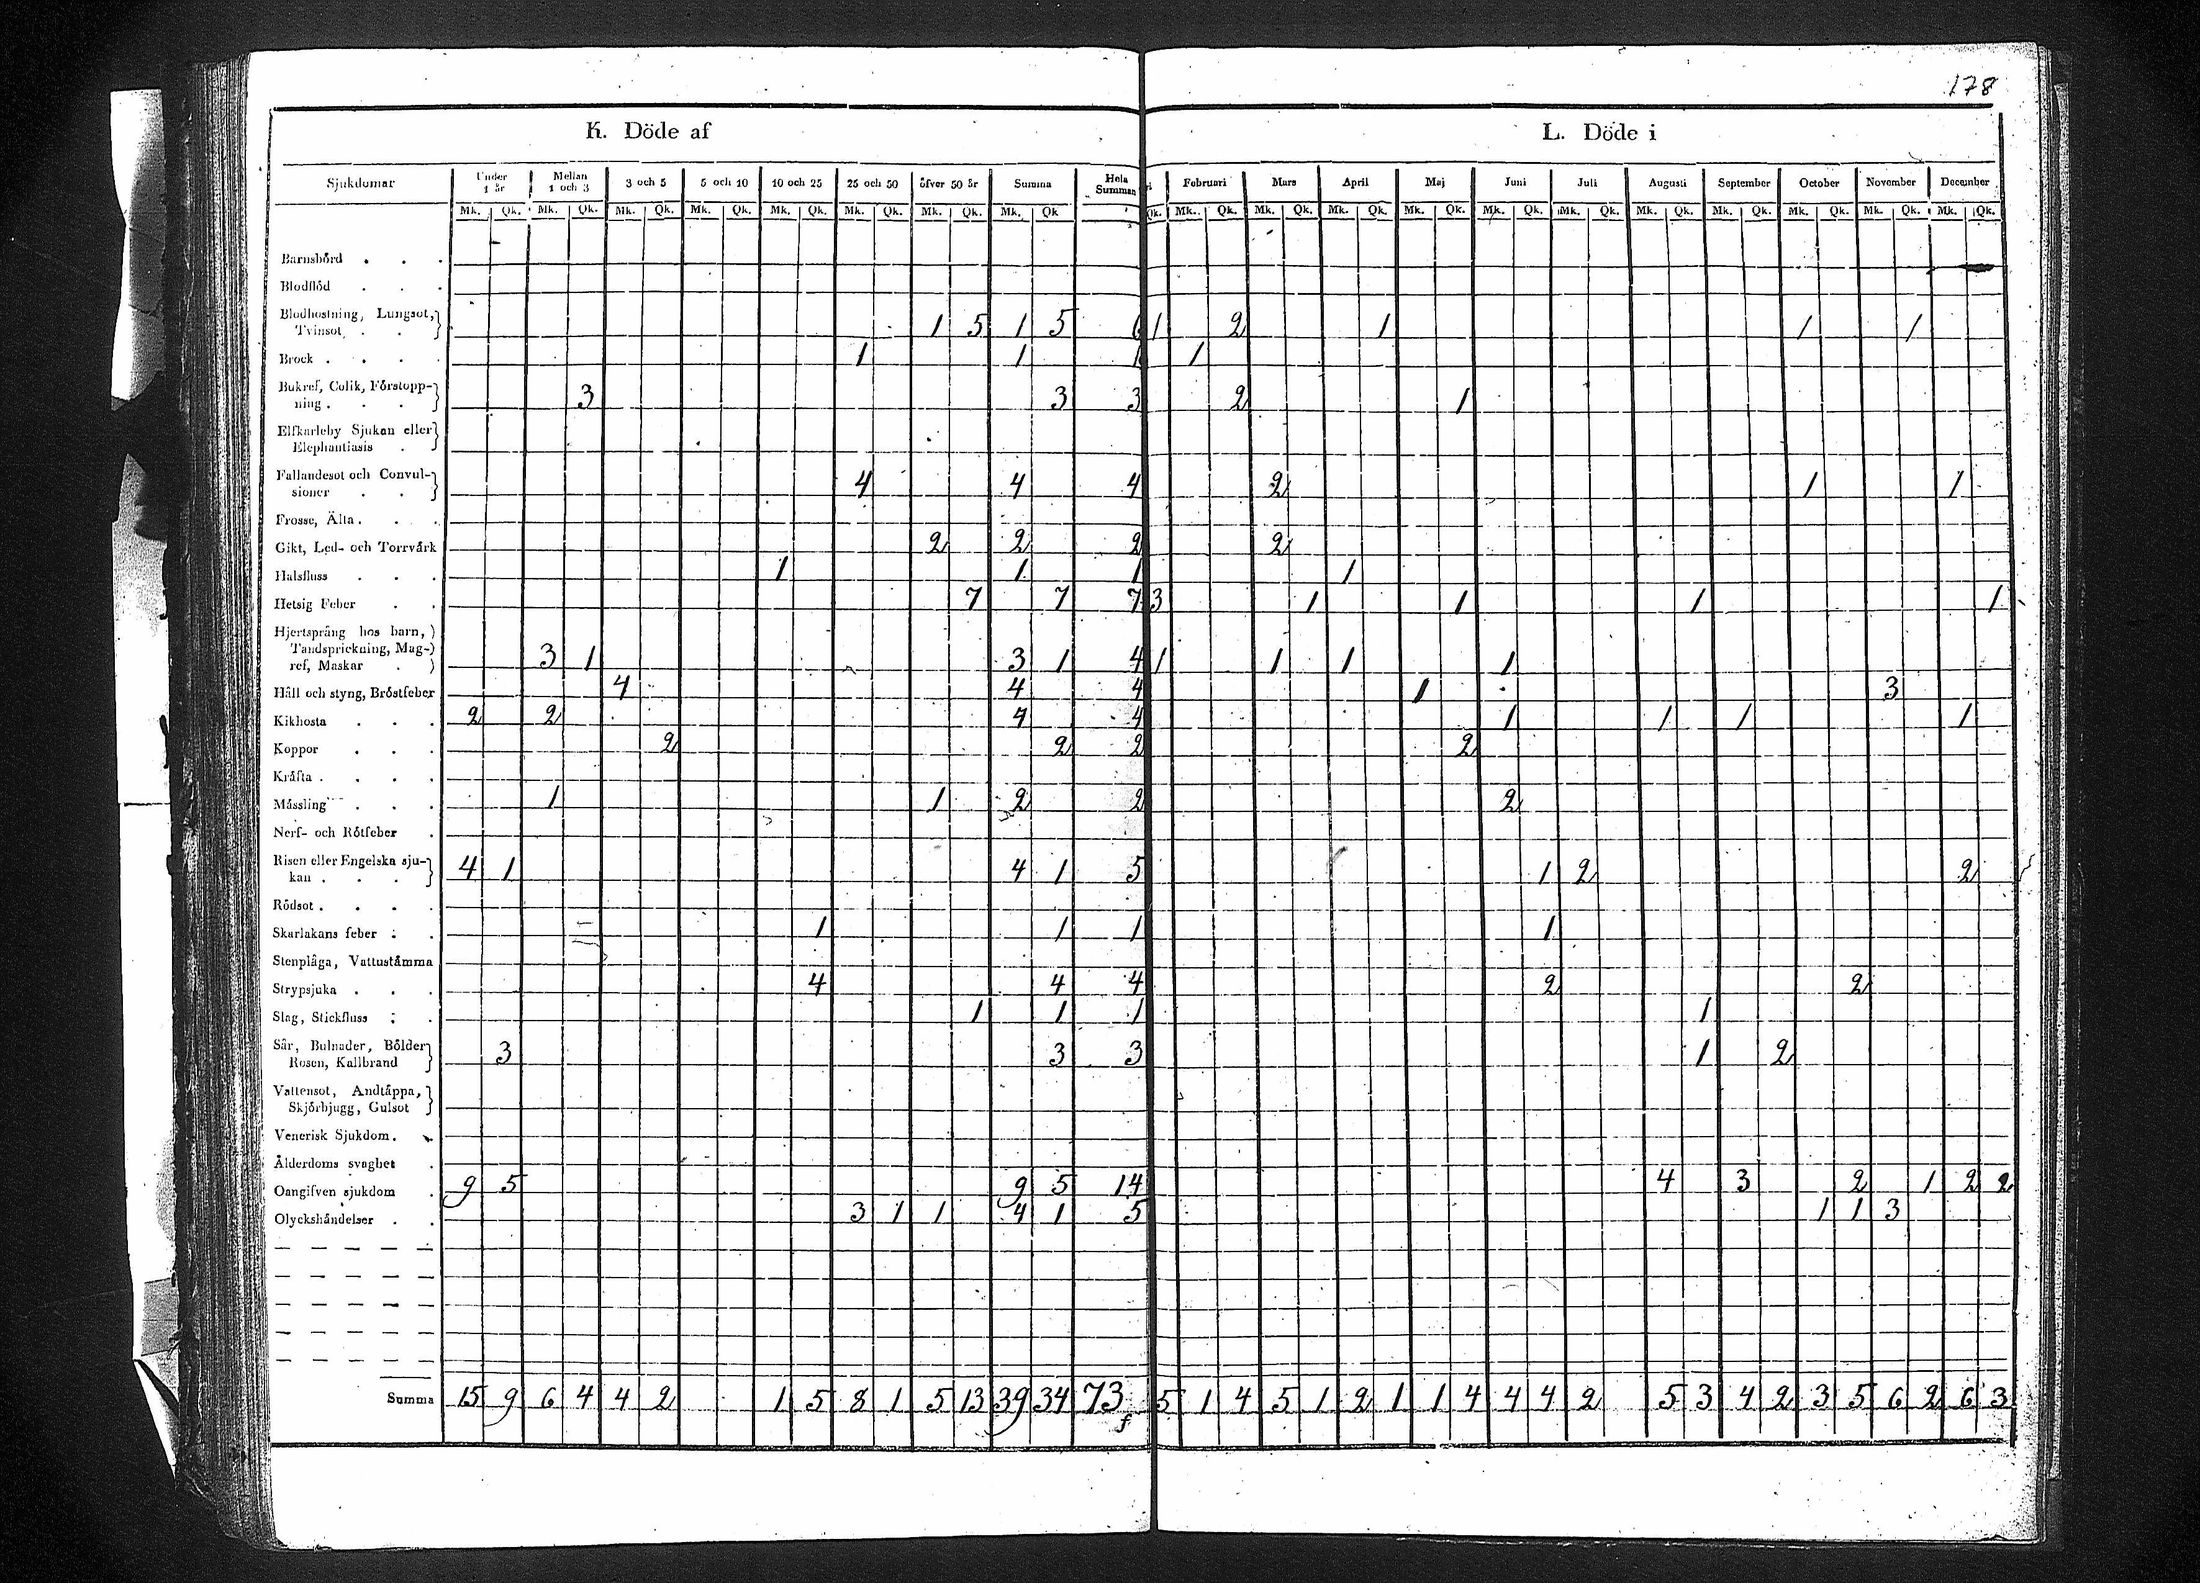 178
K. Döde af
L. Döde i
Sjukdomar Under 1 år Mellan 1 och 3 3 och 5 5 och 10 10 och 25 25 och 50 öfver 50 år Summa Hela Summan Februari Mars April Maj Juni Juli Augusti September October November December
Mk. Qk. Mk. Qk. Mk. Qk. Mk. Qk. Mk. Qk. Mk. Qk. Mk. Qk. Mk. Qk Qk. Mk. Qk. Mk. Qk. Mk. Qk. Mk. Qk. Mk. Qk. Mk. Qk. Mk. Qk. Mk. Qk. Mk. Qk. Mk. Qk. Mk. Qk.
Barnsbörd . . .
Blodflöd . . .
Blodhostning, Lungsot,
Tvinsot . . 1 5 1 5 6 1 2 1 1 1
Brock . . . . 1 1 1 1
Bukref, Colik, Förstopp-
ning . . . 3 3 3 2 1
Elfkarleby Sjukan eller
Elephantiasis .
Fallandesot och Convul-
sioner . . 4 4 4 2 1 1
Frosse, Älta . . .
Gikt, Led- och Torrvärk 2 2 2 2
Halsfluss . . . 1 1 1 1
Hetsig Feber . . 7 7 7 3 1 1 1 1
Hjertsprång hos barn,
Tandsprickning, Mag-
ref, Maskar . 3 1 3 1 4 1 1 1 1
Håll och styng, Bröstfeber 4 4 4 1 3
Kikhosta . . . 2 2 4 4 1 1 1 1
Koppor . . . 2 2 2 2
Kräfta . . . .
Mässling . . . 1 1 2 2 2
Nerf- och Rötfeber .
Risen eller Engelska sju-
kan . . . 4 1 4 1 5 1 2 2
Rödsot . . . .
Skarlakans feber . . 1 1 1 1
Stenplåga, Vattustämma
Strypsjuka . . . 4 4 4 2 2
Slag, Stickfluss . . 1 1 1 1
Sår, Bulnader, Bölder
Rosen, Kallbrand 3 3 3 1 2
Vattensot, Andtäppa,
Skjörbjugg, Gulsot
Venerisk Sjukdom .
Ålderdoms svaghet .
Oangifven sjukdom . 9 5 9 5 14 4 3 2 1 2 2
Olyckshändelser . . 3 1 1 4 1 5 1 1 3
Summa 15 9 6 4 4 2 1 5 8 1 5 13 39 34 73 5 1 4 5 1 2 1 1 4 4 4 2 5 3 4 2 3 5 6 2 6 3